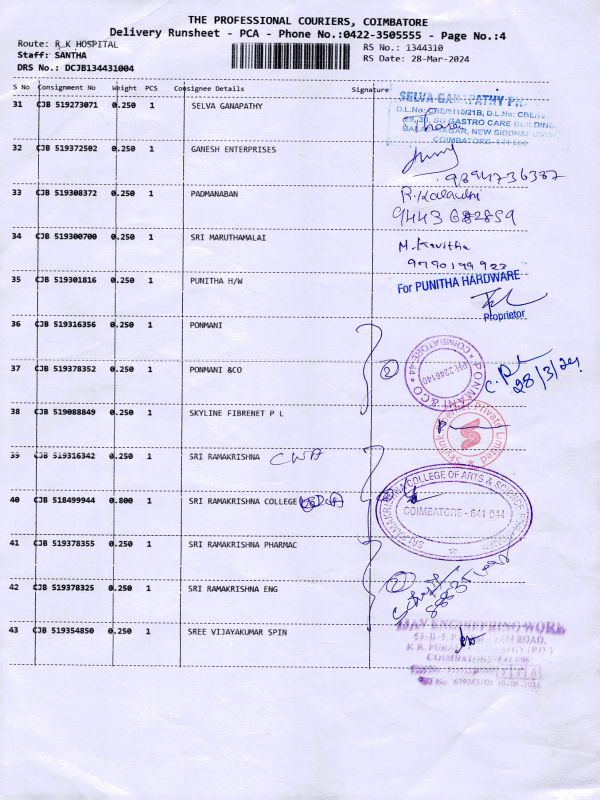 THE PROFESSIONAL COURIERS, COIMBATORE
Delivery Runsheet - PCA - Phone No.:0422-3505555 - Page No.:4
Route: R K HOSPITAL
RS No.: 1344310
Staff: SANTHA
RS Date: 28-Mar-2024
DRS No.: DCJB134431004
S No Consignment No Weight PCS Consignee Details Signature
31 CJB 519273071 0.250 1 SELVA GANAPATHY
SELVA GANAPATHY
COIMBATORE
32 CJB 519372502 0.250 1 GANESH ENTERPRISES
9894736387
33 CJB 519308372 0.250 1 PADMANABAN
R.Kalavathi
9443682859
34 CJB 519300700 0.250 1 SRI MARUTHAMALAI
M.Kavitha
35 CJB 519301816 0.250 1 PUNITHA H/W
For PUNITHA HARDWARE
Proprietor
36 CJB 519316356 0.250 1 PONMANI
37 CJB 519378352 0.250 1 PONMANI &CO
2
PONMANI & CO
COIMBATORE-44
PH:2246140
28/3/24
38 CJB 519088849 0.250 1 SKYLINE FIBRENET P L
Private Limited
39 CJB 519316342 0.250 1 SRI RAMAKRISHNA CWA
40 CJB 518499944 0.800 1 SRI RAMAKRISHNA COLLEGE
COLLEGE OF ARTS & SCIENCE
COIMBATORE - 641 044
41 CJB 519378355 0.250 1 SRI RAMAKRISHNA PHARMAC
42 CJB 519378325 0.250 1 SRI RAMAKRISHNA ENG
2
43 CJB 519354850 0.250 1 SREE VIJAYAKUMAR SPIN
ENGINEERING WORK